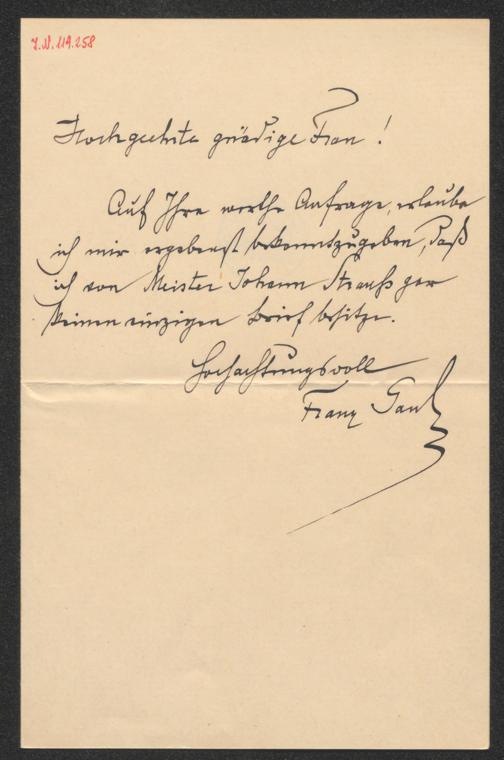 I.N. 119.258
Hochgeehrte gnädige Frau!
Auf Ihre werthe Anfrage, erlaube
ich mir ergebenst bekanntzugeben, daß
ich von Meister Johann Strauß gar
keinen einzigen Brief besitze.
Hochachtungsvoll
Franz Gaul